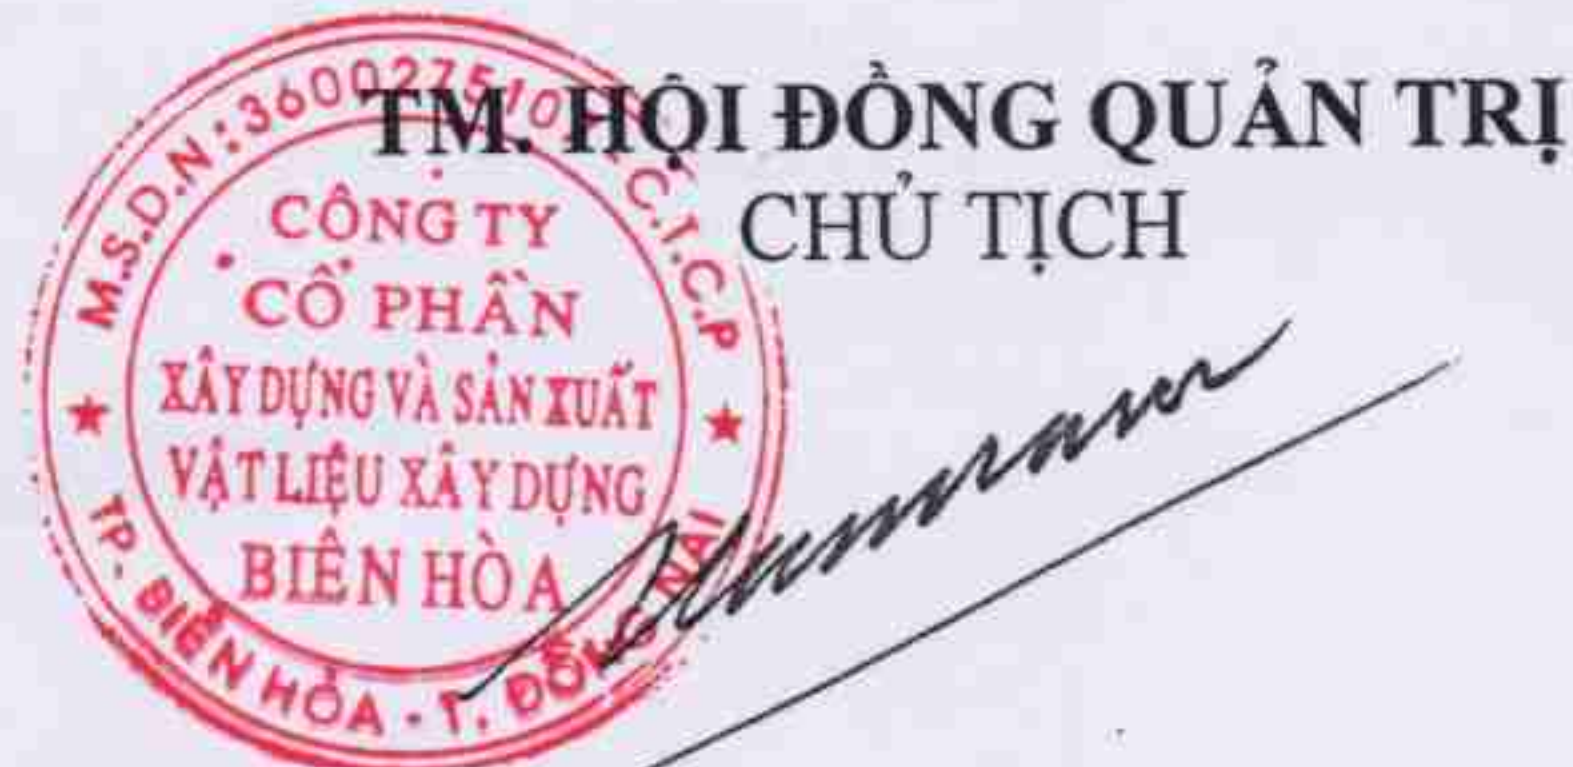 TM. HỘI ĐỒNG QUẢN TRỊ
CHỦ TỊCH
M.S.D.N: 3600275107 - C.T.C.P
CÔNG TY
CỔ PHẦN
XÂY DỰNG VÀ SẢN XUẤT
VẬT LIỆU XÂY DỰNG
BIÊN HÒA
TP. BIÊN HÒA - T. ĐỒNG NAI